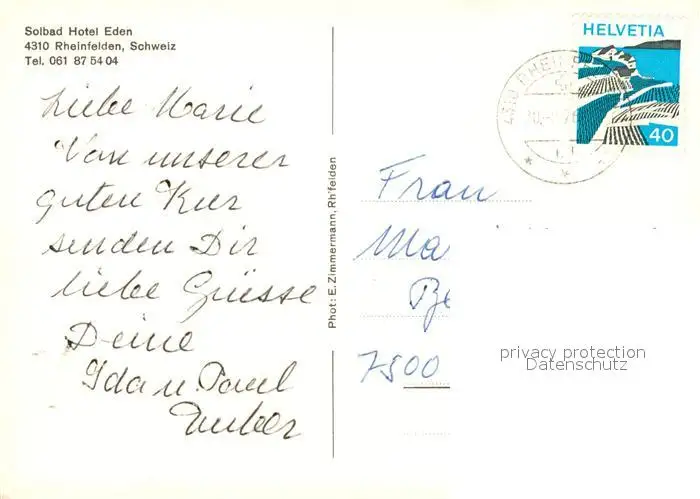 Solbad Hotel Eden
4310 Rheinfelden, Schweiz
Tel. 061 87 54 04
Liebe Marie
Von unserer
guten Kur
senden Dir
liebe Grüsse
Deine
Ida u. Paul
Phot: E. Zimmermann, Rh'felden
HELVETIA
40
4310 RHEIN
Frau
Ma
Be
7500
privacy protection
Datenschutz